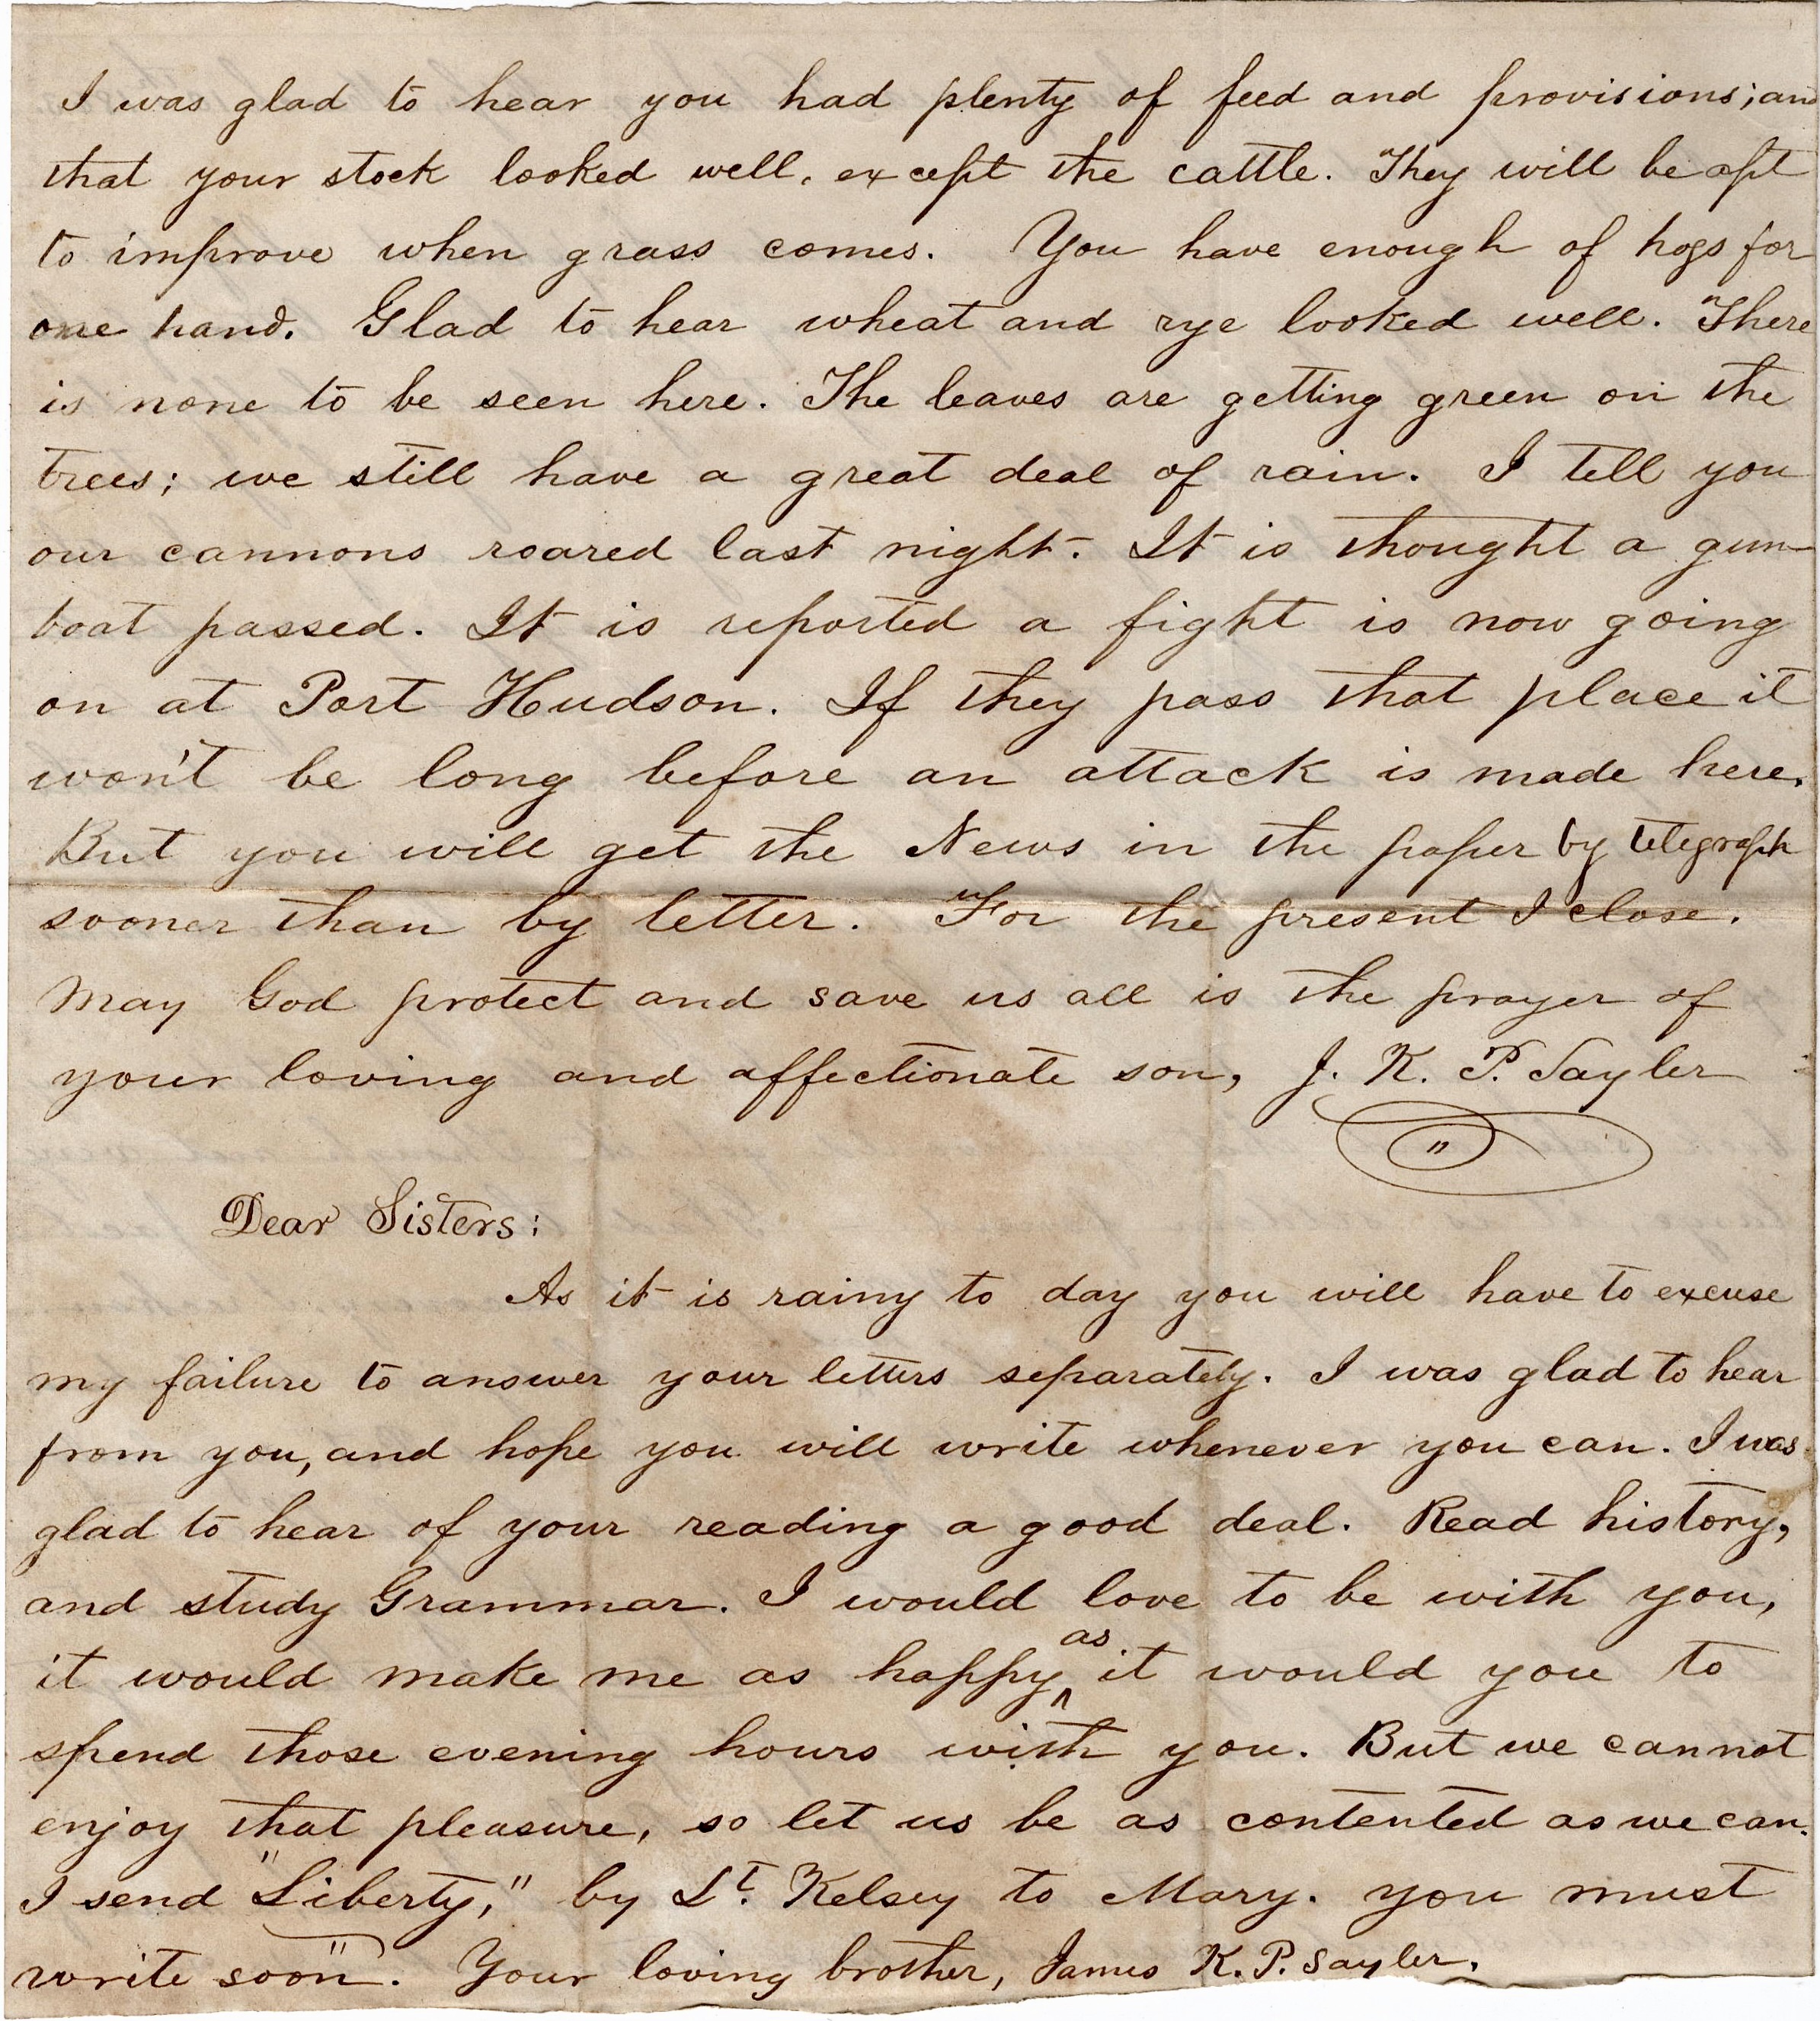 I was glad to hear you had plenty of feed and provisions; and
that your stock looked well, except the cattle. They will be apt
to improve when grass comes. You have enough of hogs for
one hand. Glad to hear wheat and rye looked well. There
is none to be seen here. The leaves are getting green on the
trees; we still have a great deal of rain. I tell you
our cannons roared last night. It is thought a gun-
boat passed. It is reported a fight is now going
on at Port Hudson. If they pass that place it
won't be long before an attack is made here.
But you will get the News in the paper by telegraph
sooner than by letter. For the present I close.
May God protect and save us all is the prayer of
your loving and affectionate son, J. K. P. Sayler
"
Dear Sisters:
As it is rainy to day you will have to excuse
my failure to answer your letters separately. I was glad to hear
from you, and hope you will write whenever you can. I was
glad to hear of your reading a good deal. Read history,
and study Grammar. I would love to be with you,
it would make me as happy as it would you to
spend those evening hours with you. But we cannot
enjoy that pleasure, so let us be as contented as we can.
I send "Liberty," by Lt. Kelsey to Mary. you must
write soon. Your loving brother, James K. P. Sayler.